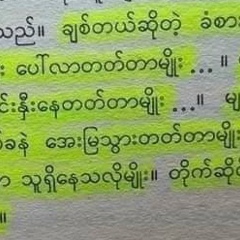 သည်။ ချစ်တယ်ဆိုတဲ့ ခံစား
ပေါ်လာတတ်တာမျိုး ... ။
နှီးနေတတ်တာမျိုး ...။
အေးမြသွားတတ်တာမျိုး
သူရှိနေသလိုမျိုး။ တိုက်ဆို
။